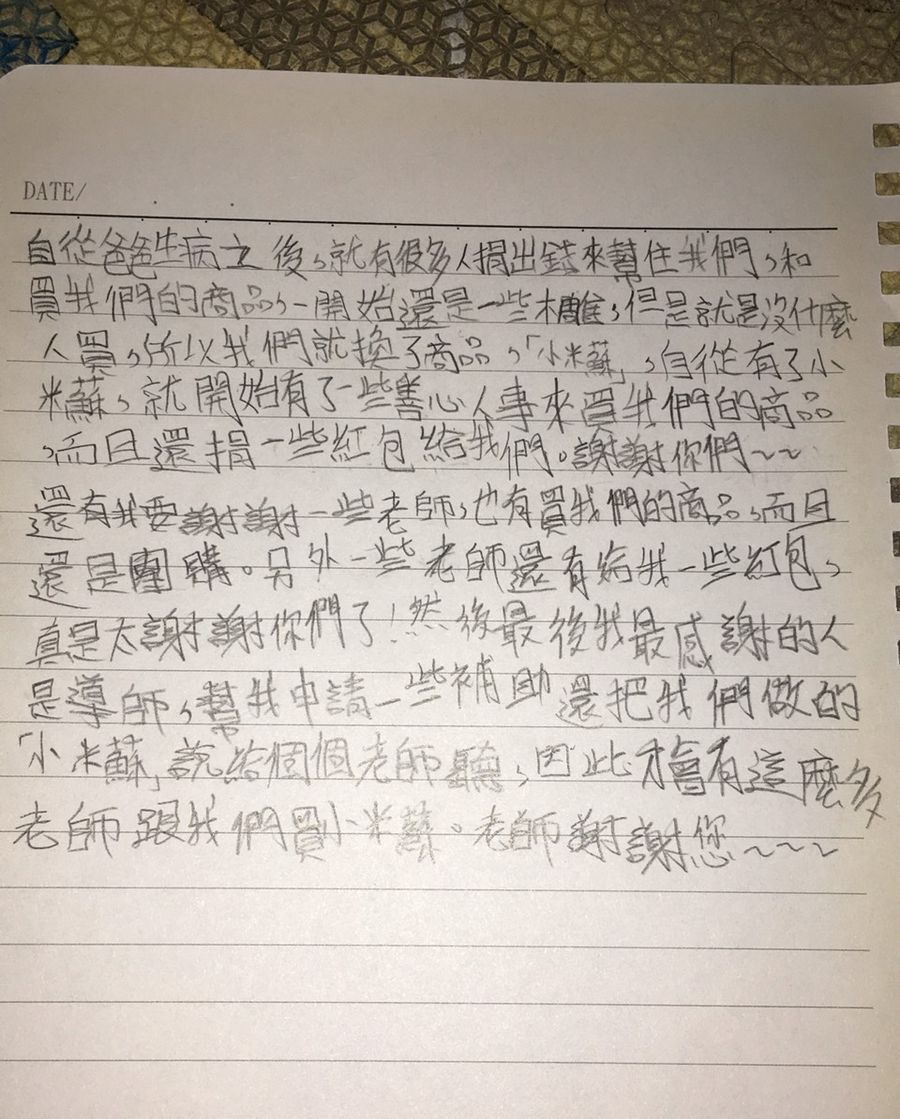 DATE/
自從爸爸生病之後,就有很多人捐出錢來幫住我們,和
買我們的商品,一開始還是一些木雕,但是就是沒什麼
人買,所以我們就換了商品,「小米蘇」,自從有了小
米蘇,就開始有了一些善心人事來買我們的商品
,而且還捐一些紅包給我們。謝謝你們~~
還有我要謝謝一些老師,也有買我們的商品,而且
還是團購。另外一些老師還有給我一些紅包,
真是太謝謝你們了!然後最後我最感謝的人
是導師,幫我申請一些補助還把我們做的
「小米蘇」說給個個老師聽,因此才會有這麼多
老師跟我們買小米蘇。老師謝謝您~~~